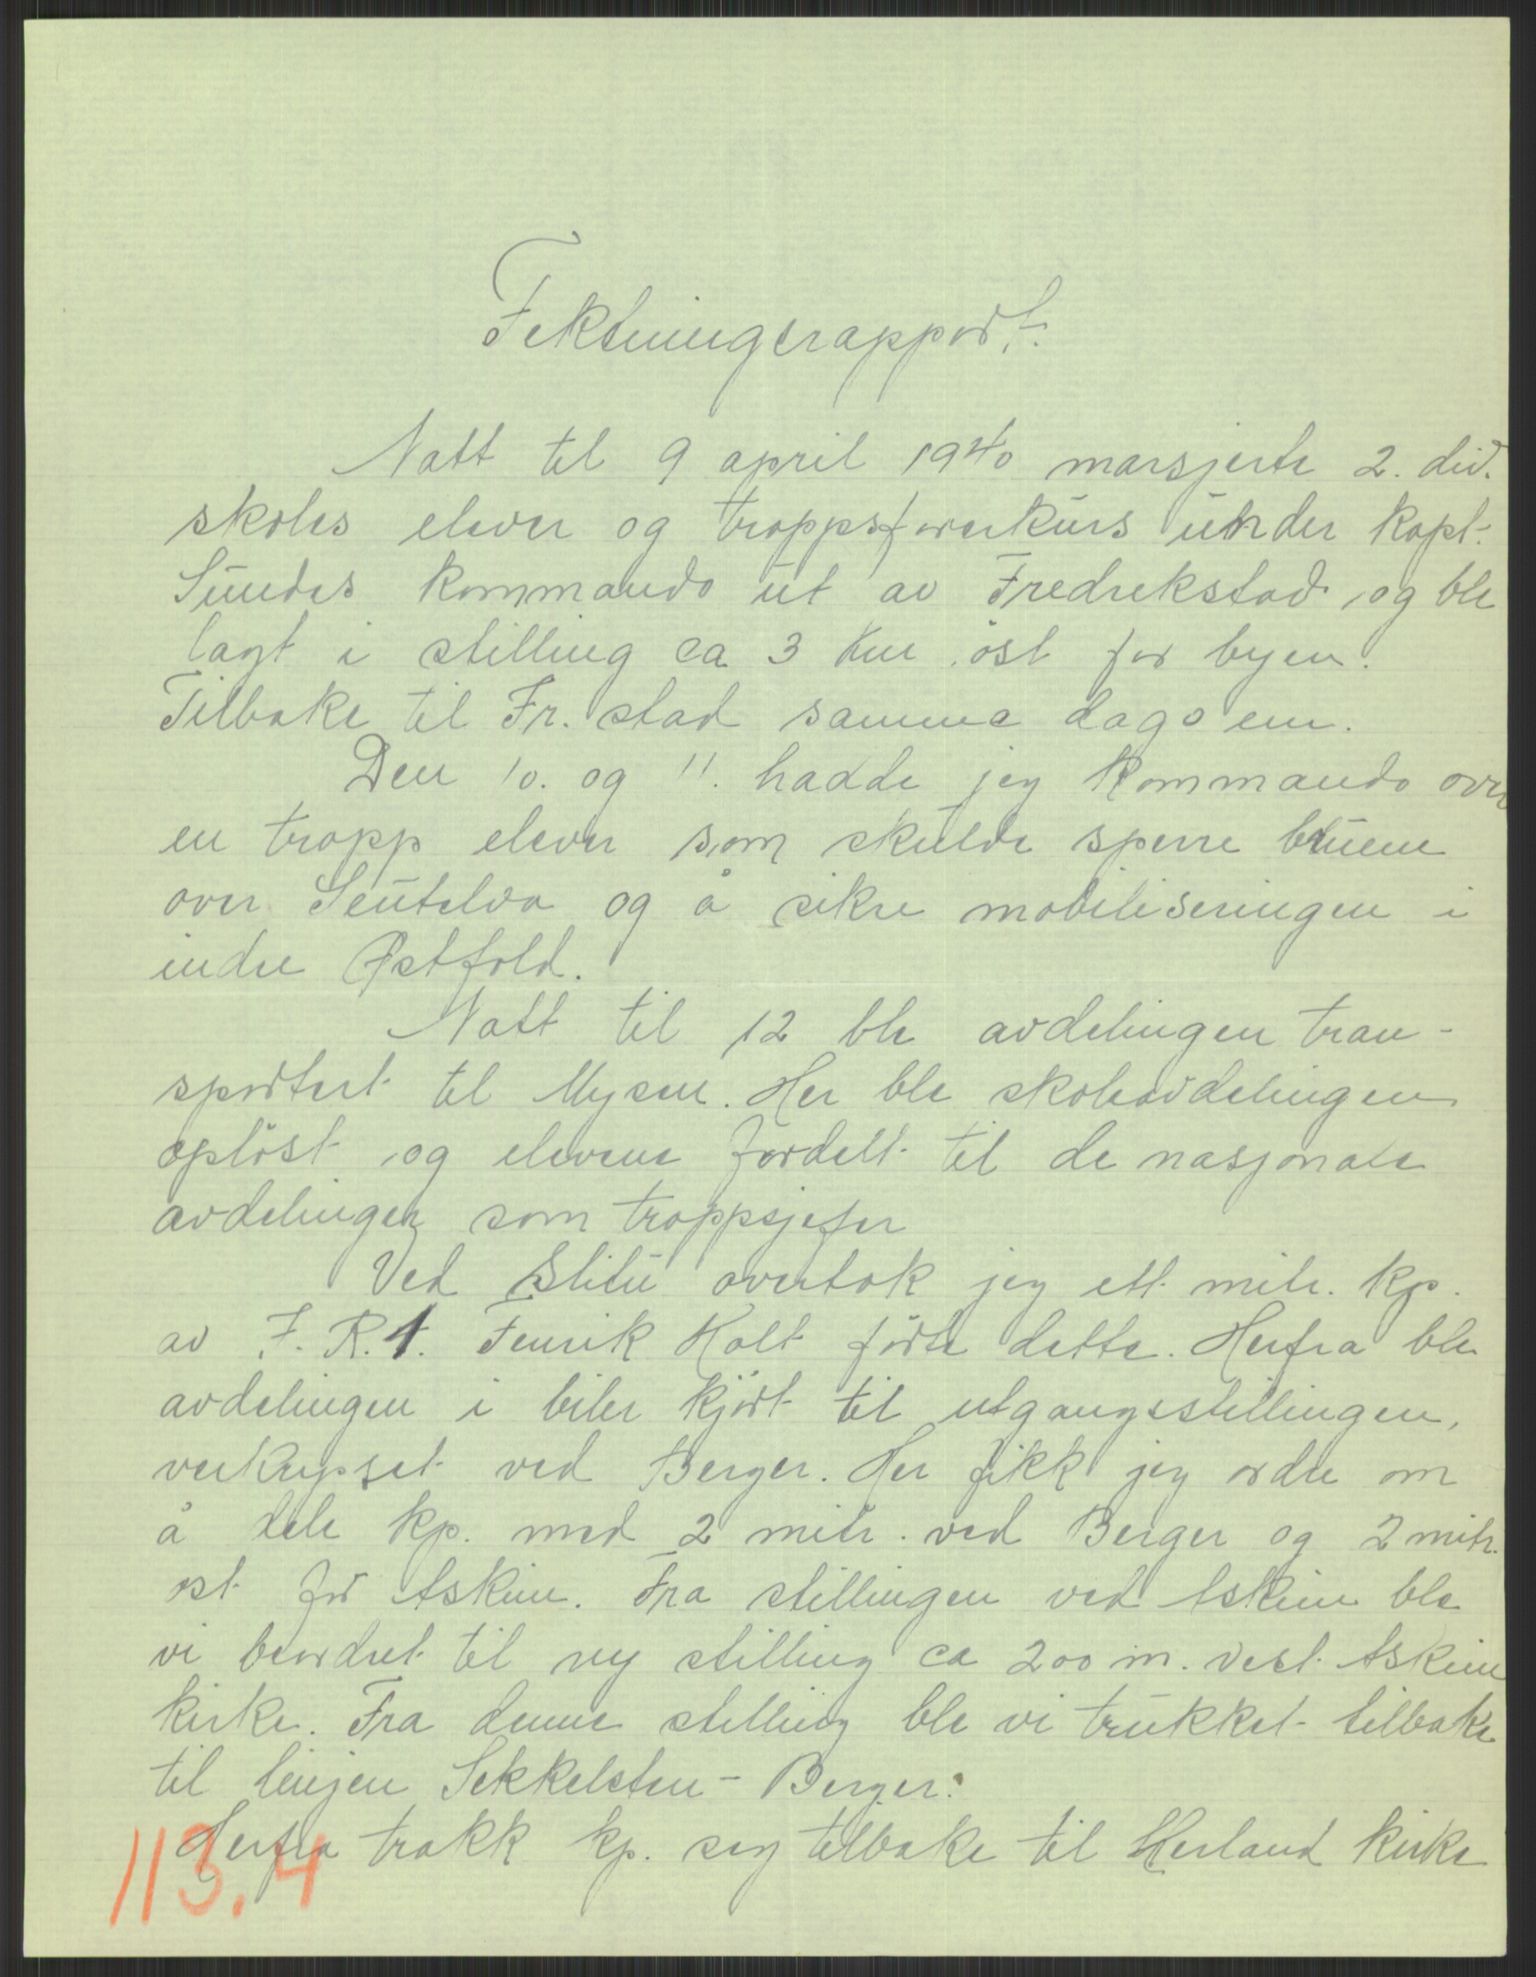 Fektningsrapport.
Natt til 9 april 1940 marsjerte 2. div.
skoles elever og troppsförerkurs under kapt.
Sundes kommando ut av Fredrikstad og ble
lagt i stilling ca 3 km öst for byen.
Tilbake til Fr. stad samme dags em.
Den 10. og 11. hadde jeg kommando over
en tropp elever som skulde sperre bruene
over Seutelva og å sikre mobiliseringen i
indre Østfold.
Natt til 12 ble avdelingen tran-
sportert til Mysen. Her ble skoleavdelingen
oplöst og elevene fordelt til de nasjonale
avdelinger som troppsjefer
Ved Slitu overtok jeg ett mitr. kp.
av I. R. 1. Fenrik Holt förte dette. Herfra ble
avdelingen i biler kjört til utgangsstillingen,
veikrysset ved Berger. Her fikk jeg ordre om
å dele kp. med 2 mitr. ved Berger og 2 mitr.
öst for Askim. Fra stillingen ved Askim ble
vi beordret til ny stilling ca 200 m. vest Askim
kirke. Fra denne stilling ble vi trukket tilbake
til linjen Sekkelsten - Berger.
Herfra trakk kp. seg tilbake til Herland kirke
113.4